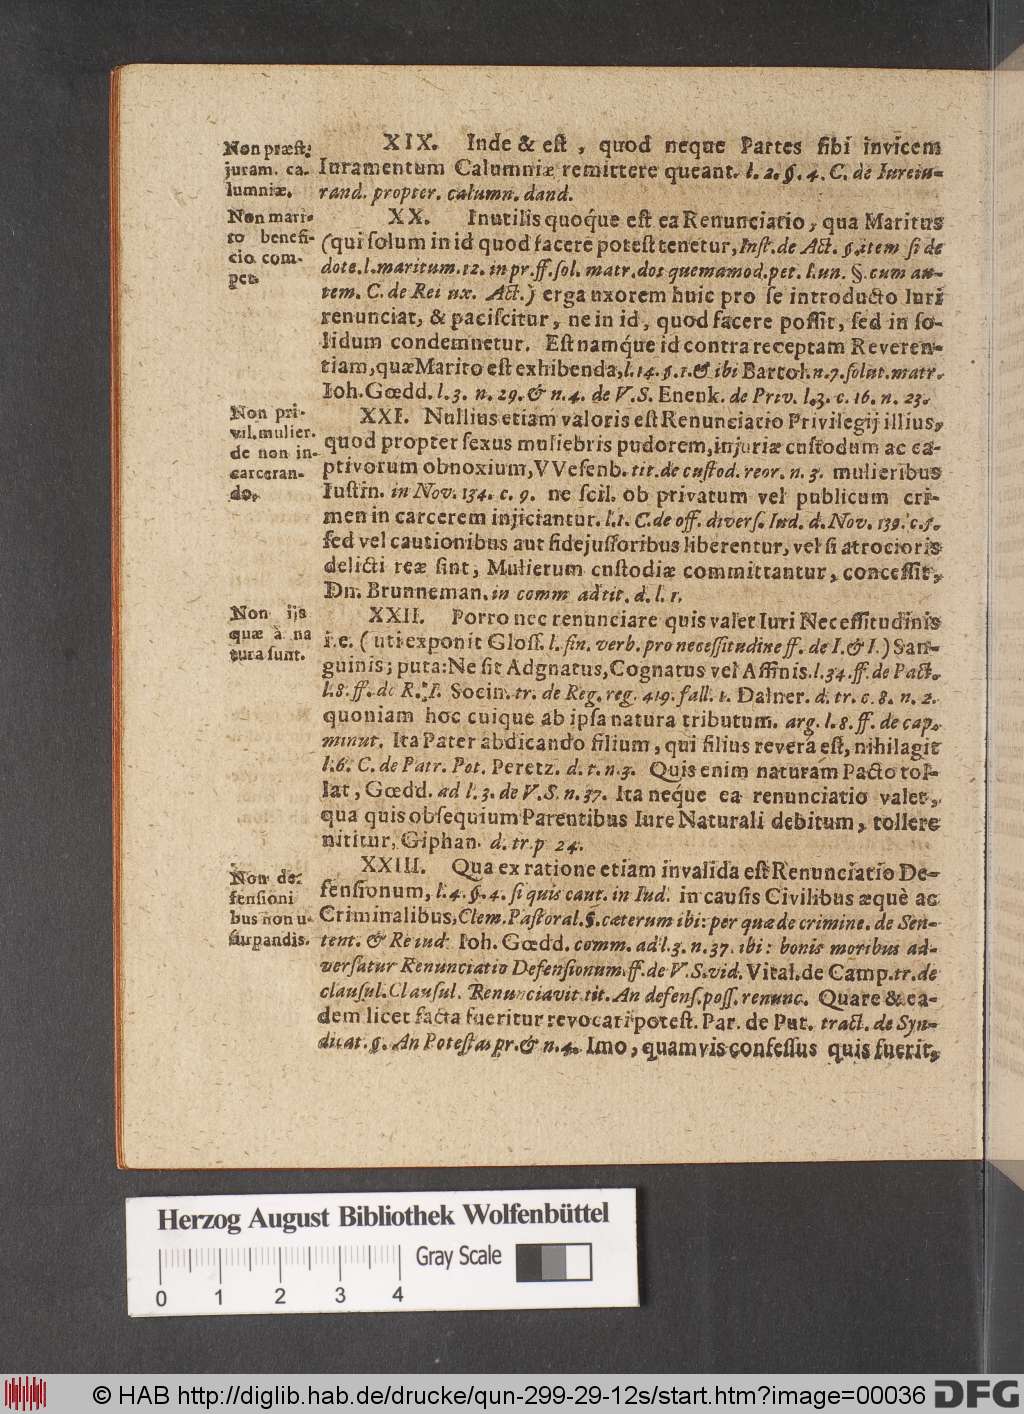 Non præst:
juram. ca-
lumniæ.
XIX. Inde & est, quod neque Partes sibi invicem
Iuramentum Calumniæ remittere queant. l. 2. §. 4. C. de Iureiu-
rand. propter. calumn. dand.
Non mari-
to benefi-
cio com-
pet.
XX. Inutilis quoque est ea Renunciatio, qua Maritus
(qui solum in id quod facere potest tenetur, Inst. de Act. §. item si de
dote. l. maritum. 12. in pr. ff. sol. matr. dos quemamod. pet. l. un. §. cum au-
tem. C. de Rei ux. Act.) erga uxorem huic pro se introducto Iuri
renunciat, & paciscitur, ne in id, quod facere possit, sed in so-
lidum condemnetur. Est namque id contra receptam Reveren-
tiam, quæ Marito est exhibenda, l. 14. §. 1. & ibi Bartol. n. 7. solut. matr.
Ioh. Gœdd. l. 3. n. 29. & n. 4. de V. S. Enenk. de Priv. l. 3. c. 16. n. 23.
Non pri-
vil. mulier.
de non in-
carceran-
do.
XXI. Nullius etiam valoris est Renunciatio Privilegij illius,
quod propter sexus muliebris pudorem, injuriæ custodum ac ca-
ptivorum obnoxium, VVesenb. tit. de custod. reor. n. 3. mulieribus
Iustin. in Nov. 134. c. 9. ne scil. ob privatum vel publicum cri-
men in carcerem injiciantur. l. 1. C. de off. divers. Iud. d. Nov. 139. c. 1.
sed vel cautionibus aut fidejussoribus liberentur, vel si atrocioris
delicti reæ sint, Mulierum custodiæ committantur, concessit,
Dn. Brunneman. in comm ad tit. d. l. 1.
Non ijs
quæ à na
tura sunt.
XXII. Porro nec renunciare quis valet Iuri Necessitudinis
i. e. (uti exponit Gloss. l. fin. verb. pro necessitudine ff. de I. & I.) San-
guinis; puta: Ne sit Adgnatus, Cognatus vel Affinis. l. 34. ff. de Pact.
l. 8. ff. de R. I. Socin. tr. de Reg. reg. 419. fall. 1. Dalner. d. tr. c. 8. n. 2.
quoniam hoc cuique ab ipsa natura tributum. arg. l. 8. ff. de cap.
minut. Ita Pater abdicando filium, qui filius reverá est, nihil agit
l. 6. C. de Patr. Pot. Peretz. d. t. n. 3. Quis enim naturam Pacto tol-
lat, Gœdd. ad l. 3. de V. S. n. 37. Ita neque ea renunciatio valet,
qua quis obsequium Parentibus Iure Naturali debitum, tollere
nititur, Giphan. d. tr. p 24.
Non de-
fensioni
bus non u-
surpandis.
XXIII. Qua ex ratione etiam invalida est Renunciatio De-
fensionum, l. 4. §. 4. si quis caut. in Iud. in causis Civilibus æquè ac
Criminalibus, Clem. Pastoral. §. cæterum ibi: per quæ de crimine. de Sen-
tent. & Re iud. Ioh. Gœdd. comm. ad l. 3. n. 37. ibi: bonis moribus ad-
versatur Renunciatio Defensionum. ff. de V. S. vid. Vital. de Camp. tr. de
clausul. Clausul. Renunciavit tit. An defens. poss. renunc. Quare & ea-
dem licet facta fuerit ur revocari potest. Par. de Put. tract. de Syn-
dicat. §. An Potestas pr. & n. 4. Imo, quamvis confessus quis fuerit,
Herzog August Bibliothek Wolfenbüttel
Gray Scale
0 1 2 3 4
© HAB http://diglib.hab.de/drucke/qun-299-29-12s/start.htm?image=00036
DFG